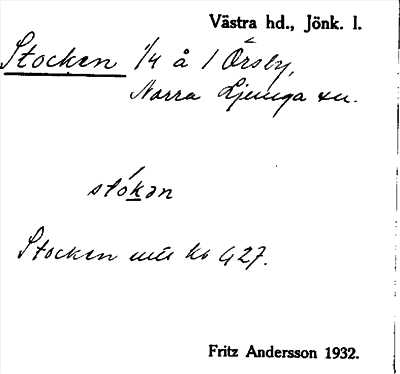 Västra hd., Jönk. l.
Stocken 1/4 å 1 Örsby,
Norra Ljunga sn.
stókən
Stocken mtl kb 427.
Fritz Andersson 1932.